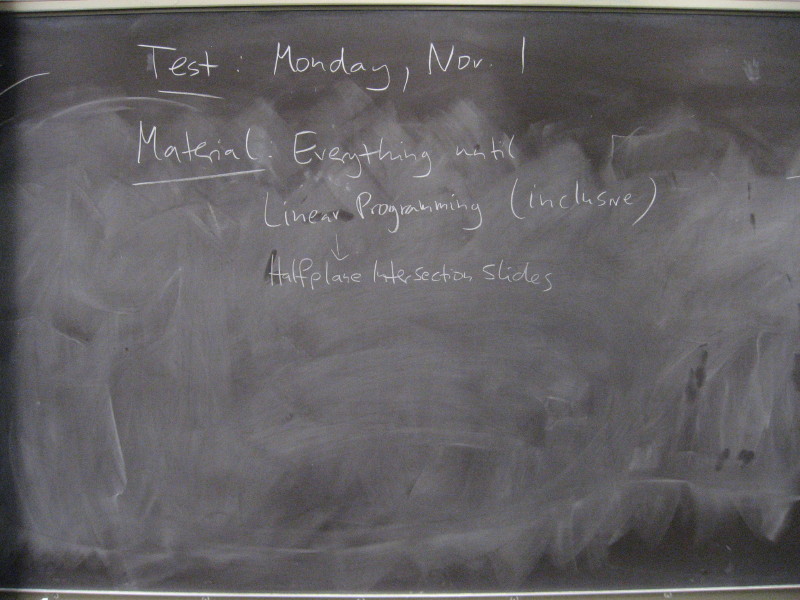 Test: Monday, Nov. 1
Material: Everything until
Linear Programming (inclusive)
↓
Halfplane Intersection Slides